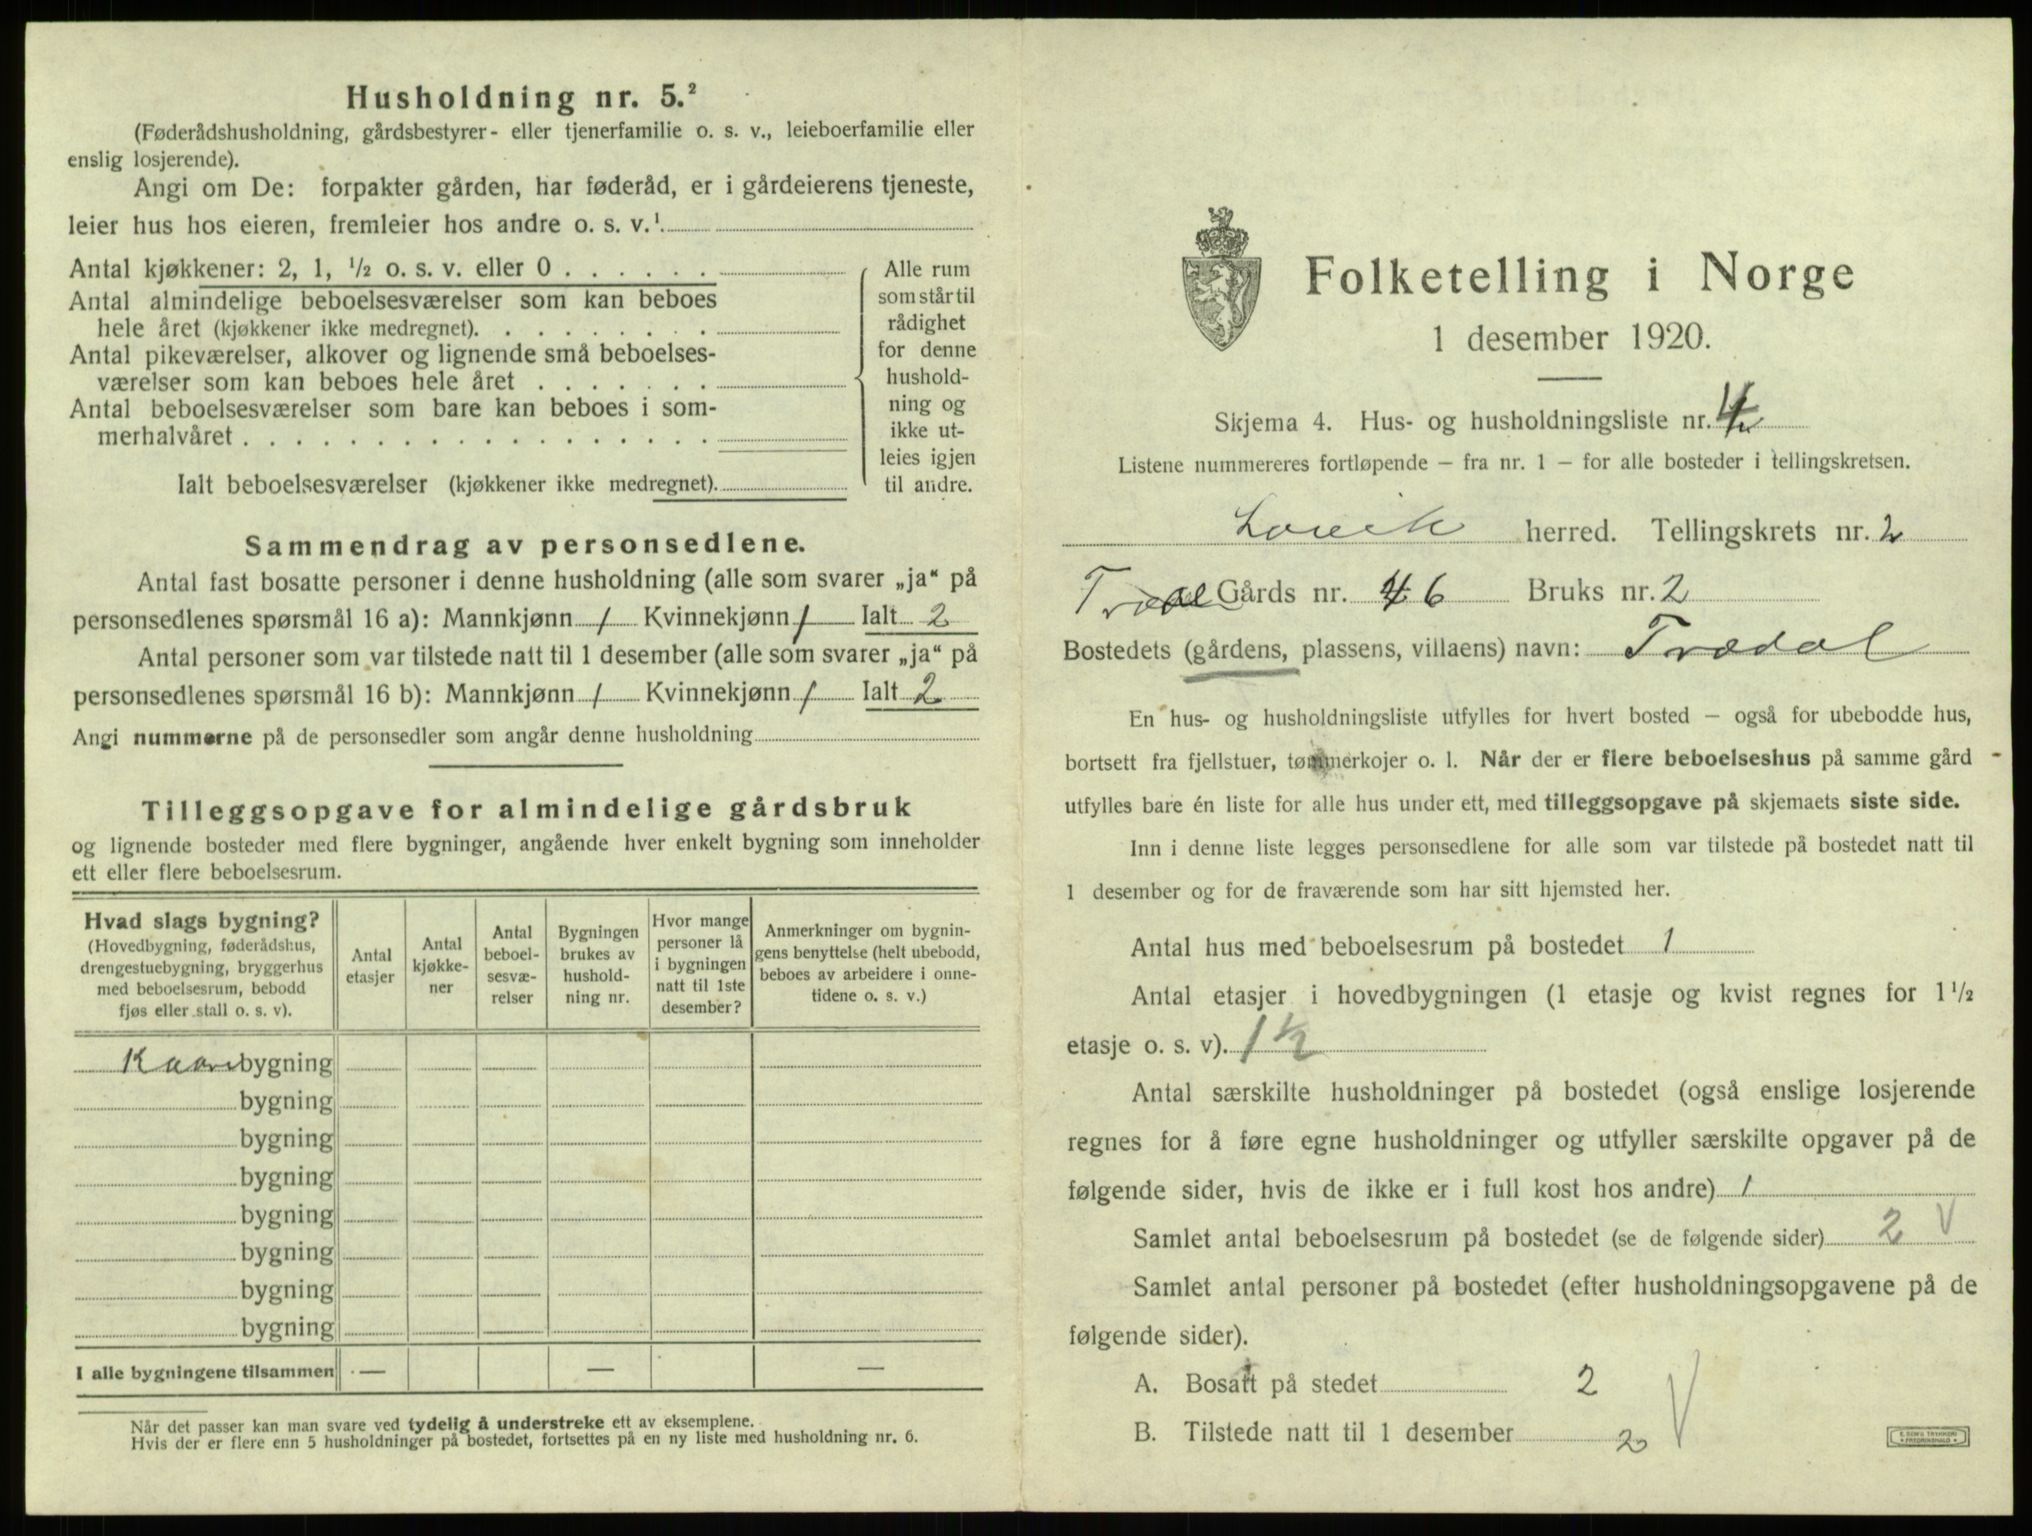 Husholdning nr. 5.²
(Føderådshusholdning, gårdsbestyrer- eller tjenerfamilie o. s. v., leieboerfamilie eller
enslig losjerende).
Angi om De: forpakter gården, har føderåd, er i gårdeierens tjeneste,
leier hus hos eieren, fremleier hos andre o. s. v.¹
Antal kjøkkener: 2, 1, ½ o. s. v. eller 0
Antal almindelige beboelsesværelser som kan beboes
hele året (kjøkkener ikke medregnet).
Antal pikeværelser, alkover og lignende små beboelses-
værelser som kan beboes hele året
Antal beboelsesværelser som bare kan beboes i som-
merhalvåret
Ialt beboelsesværelser (kjøkkener ikke medregnet).
Alle rum
som står til
rådighet
for denne
hushold-
ning og
ikke ut-
leies igjen
til andre.
Sammendrag av personsedlene.
Antal fast bosatte personer i denne husholdning (alle som svarer „ja“ på
personsedlenes spørsmål 16 a): Mannkjønn 1 Kvinnekjønn 1 Ialt 2
Antal personer som var tilstede natt til 1 desember (alle som svarer „ja“ på
personsedlenes spørsmål 16 b): Mannkjønn 1 Kvinnekjønn 1 Ialt 2
Angi nummerne på de personsedler som angår denne husholdning
Tilleggsopgave for almindelige gårdsbruk
og lignende bosteder med flere bygninger, angående hver enkelt bygning som inneholder
ett eller flere beboelsesrum.
Hvad slags bygning?
(Hovedbygning, føderådshus,
drengestuebygning, bryggerhus
med beboelsesrum, bebodd
fjøs eller stall o. s. v).
Antal
etasjer
Antal
kjøkke-
ner
Antal
beboel-
sesvæ-
relser
Bygningen
brukes av
hushold-
ning nr.
Hvor mange
personer lå
i bygningen
natt til 1ste
desember?
Anmerkninger om bygnin-
gens benyttelse (helt ubebodd,
beboes av arbeidere i onne-
tidene o. s. v.)
bygning
bygning
bygning
bygning
bygning
bygning
bygning
bygning
I alle bygningene tilsammen — — —
Når det passer kan man svare ved tydelig å understreke ett av eksemplene.
Hvis der er flere enn 5 husholdninger på bostedet, fortsettes på en ny liste med husholdning nr. 6.
Folketelling i Norge
1 desember 1920.
Skjema 4. Hus- og husholdningsliste nr. 4
Listene nummereres fortløpende – fra nr. 1 – for alle bosteder i tellingskretsen.
herred. Tellingskrets nr. 2
Gårds nr. 46 Bruks nr. 2
Bostedets (gårdens, plassens, villaens) navn: Trædal
En hus- og husholdningsliste utfylles for hvert bosted – også for ubebodde hus,
bortsett fra fjellstuer, tømmerkojer o. l. Når der er flere beboelseshus på samme gård
utfylles bare én liste for alle hus under ett, med tilleggsopgave på skjemaets siste side.
Inn i denne liste legges personsedlene for alle som var tilstede på bostedet natt til
1 desember og for de fraværende som har sitt hjemsted her.
Antal hus med beboelsesrum på bostedet 1
Antal etasjer i hovedbygningen (1 etasje og kvist regnes for 1½
etasje o. s. v). 1½
Antal særskilte husholdninger på bostedet (også enslige losjerende
regnes for å føre egne husholdninger og utfyller særskilte opgaver på de
følgende sider, hvis de ikke er i full kost hos andre) 1
Samlet antal beboelsesrum på bostedet (se de følgende sider) 2 V
Samlet antal personer på bostedet (efter husholdningsopgavene på de
følgende sider).
A. Bosatt på stedet 2
B. Tilstede natt til 1 desember 2 V